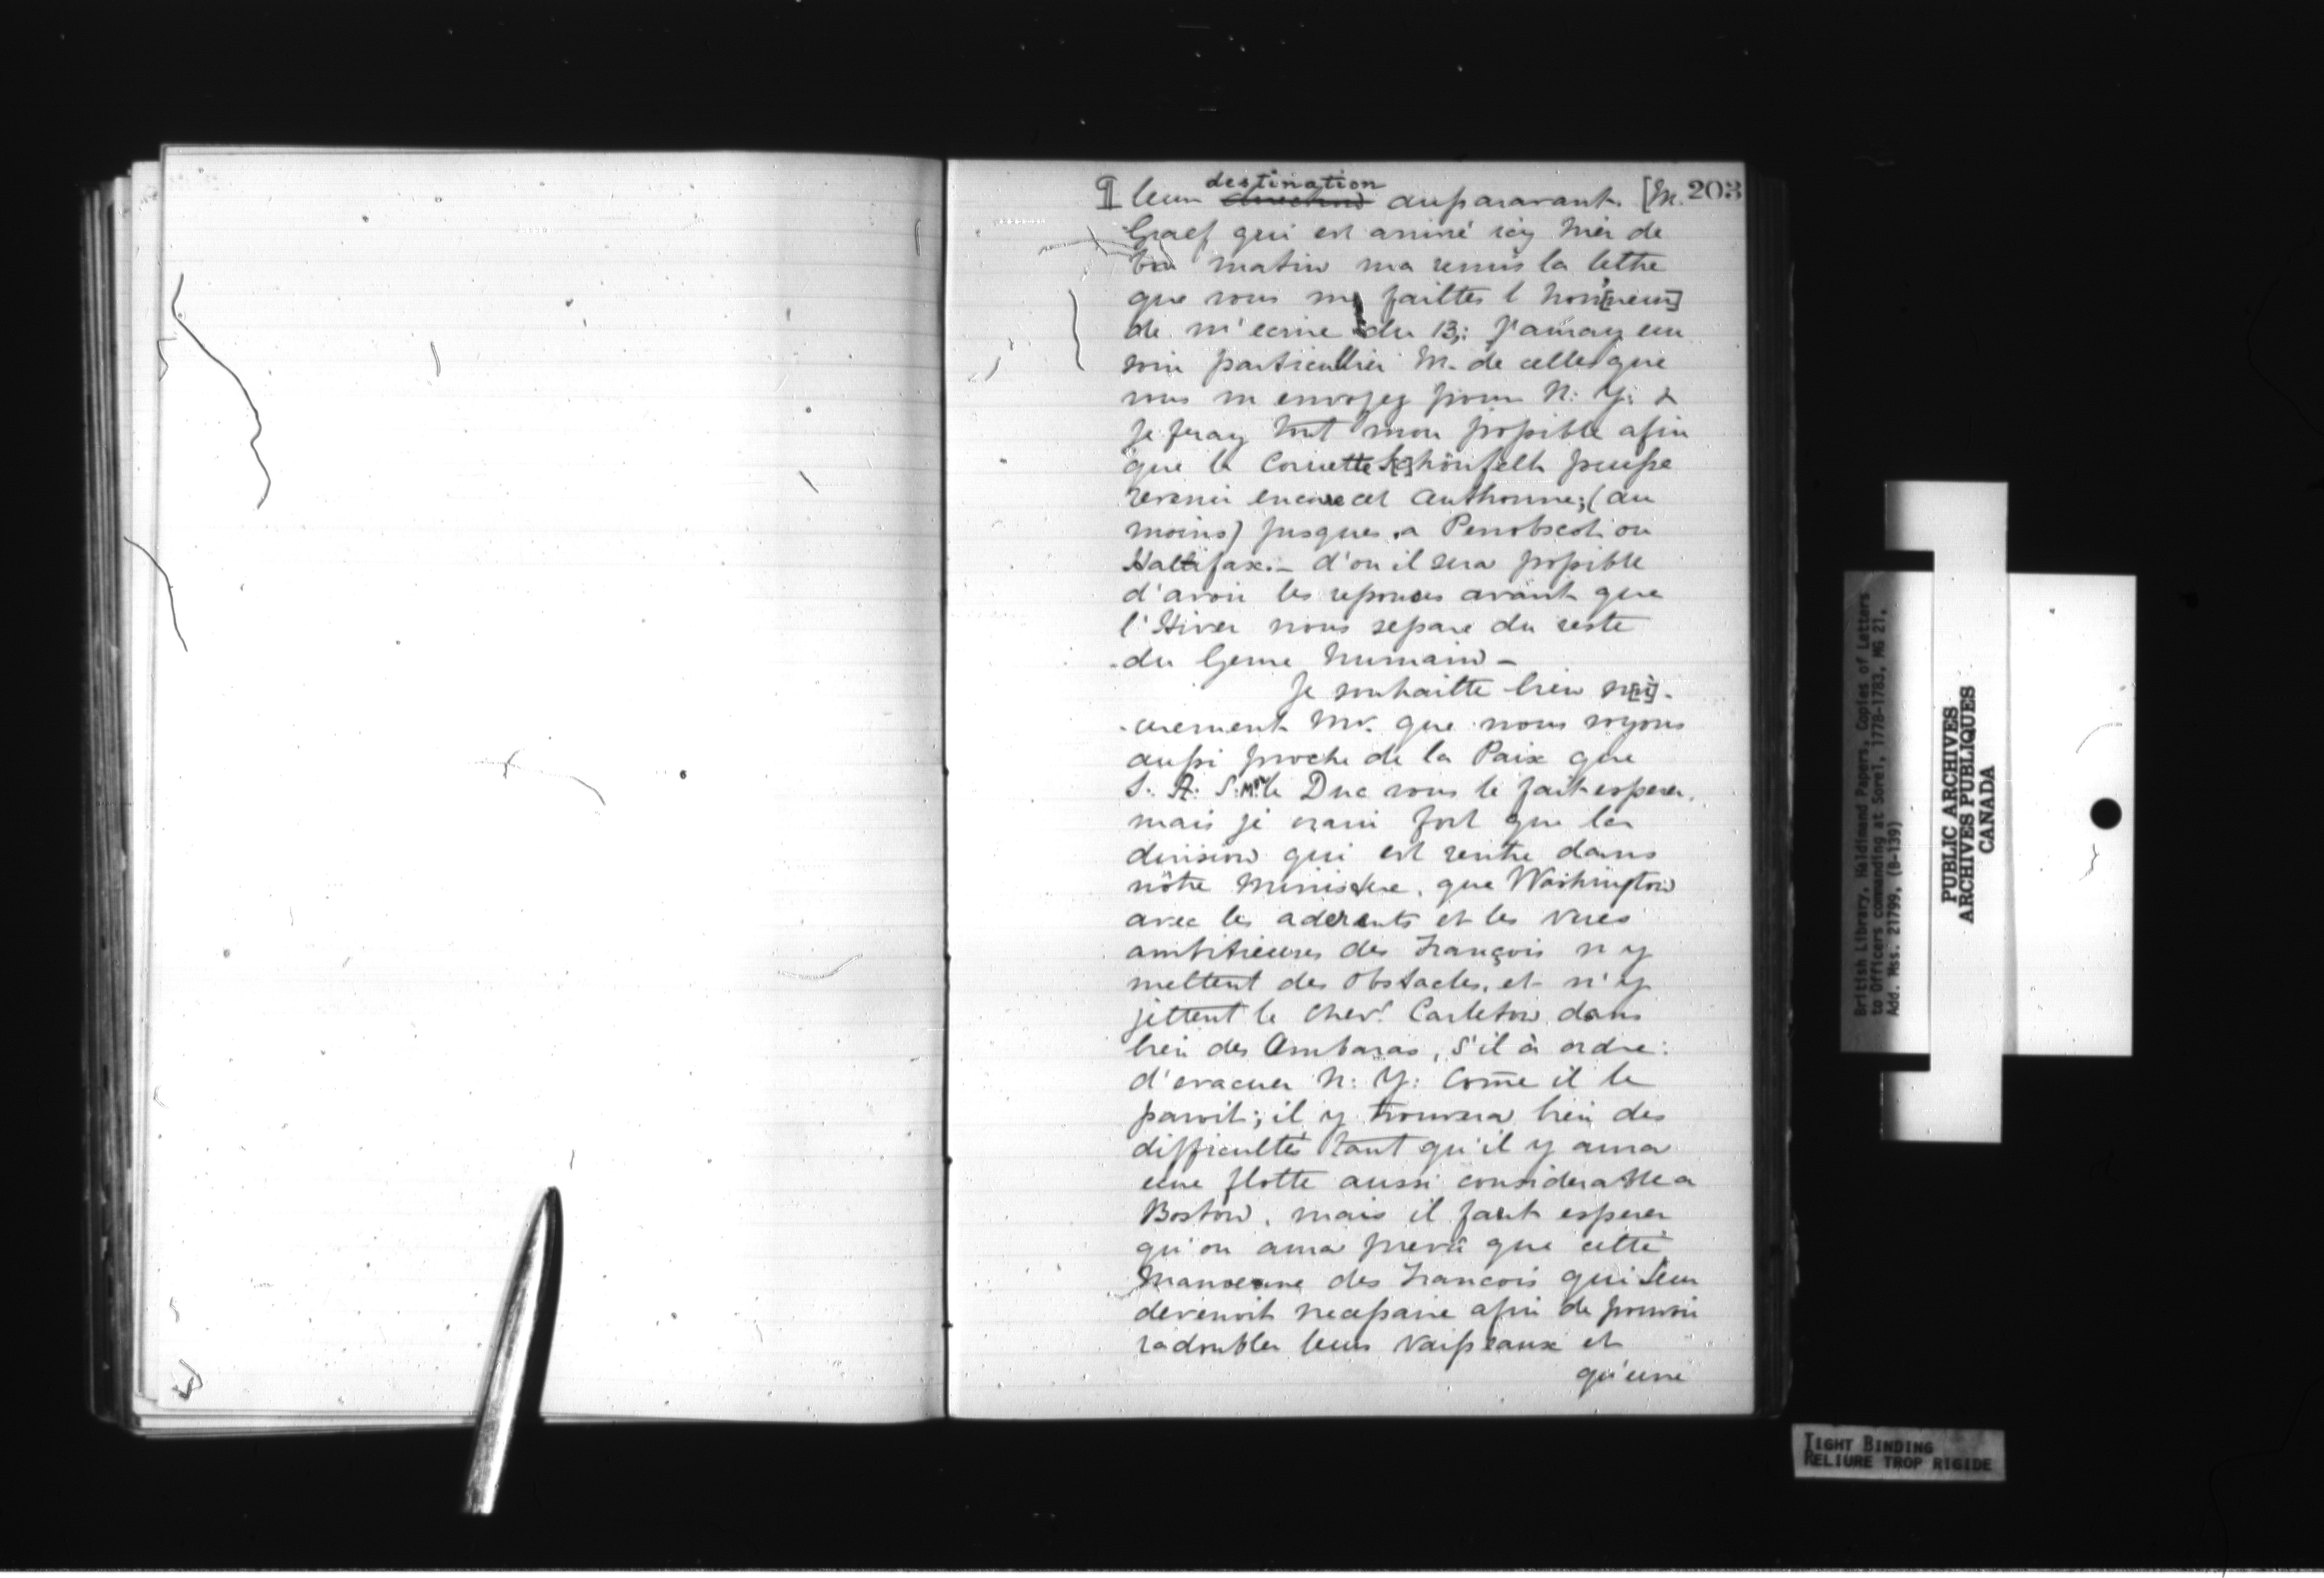 destination
¶ leur auparavant. [M. 203
Graef qui est arrivé icy hier de
bon matin ma remis la lettre
que vous me faittes l'hon[neur]
de m'ecrire du 13: J'auray un
soin particullier M. de celles que
vous m envoyez pour N: Y: &
Je feray tout mon possible afin
que le Cornette S[c]hönfelt puisse
revenir encore cet Authonne; (au
moins) Jusques a Penobscot ou
Hallifax. - d'ou il sera possible
d'avoir les reponces avant que
l'Hiver nous separe du reste
du Genre humain -
Je souhaitte bien sin[
-cerement Mr. que nous soyons
aussi proche de la Paix que
S: A: S: Mgr le Duc vous le fait esperer,
mais je crain fort que la
division qui est rentre dans
nôtre Ministere, que Washington
avec les aderents et les vues
ambitieuses des François n y
mettent des Obstacles, et n'y
jettent le Chevr. Carleton dans
bien des Ambaras, S'il à ordre:
d'evacuer N: Y: Come il le
paroit; il y trouvera bien des
difficultés tant qu'il y aura
une flotte aussi considerable a
Boston, mais il faut esperer
qu'on aura prevû que cette
Manoeuvre des Francois qui leur
devenoit necessaire afin de pouvoir
radoubler leurs Vaisseaux et
qu'une
British Library, Haldimand Papers, Copies of Letters
to Officers commanding at Sorel, 1778-1783, MG 21,
Add. Mss. 21799, (B-139)
PUBLIC ARCHIVES
ARCHIVES PUBLIQUES
CANADA
TIGHT BINDING
RELIURE TROP RIGIDE